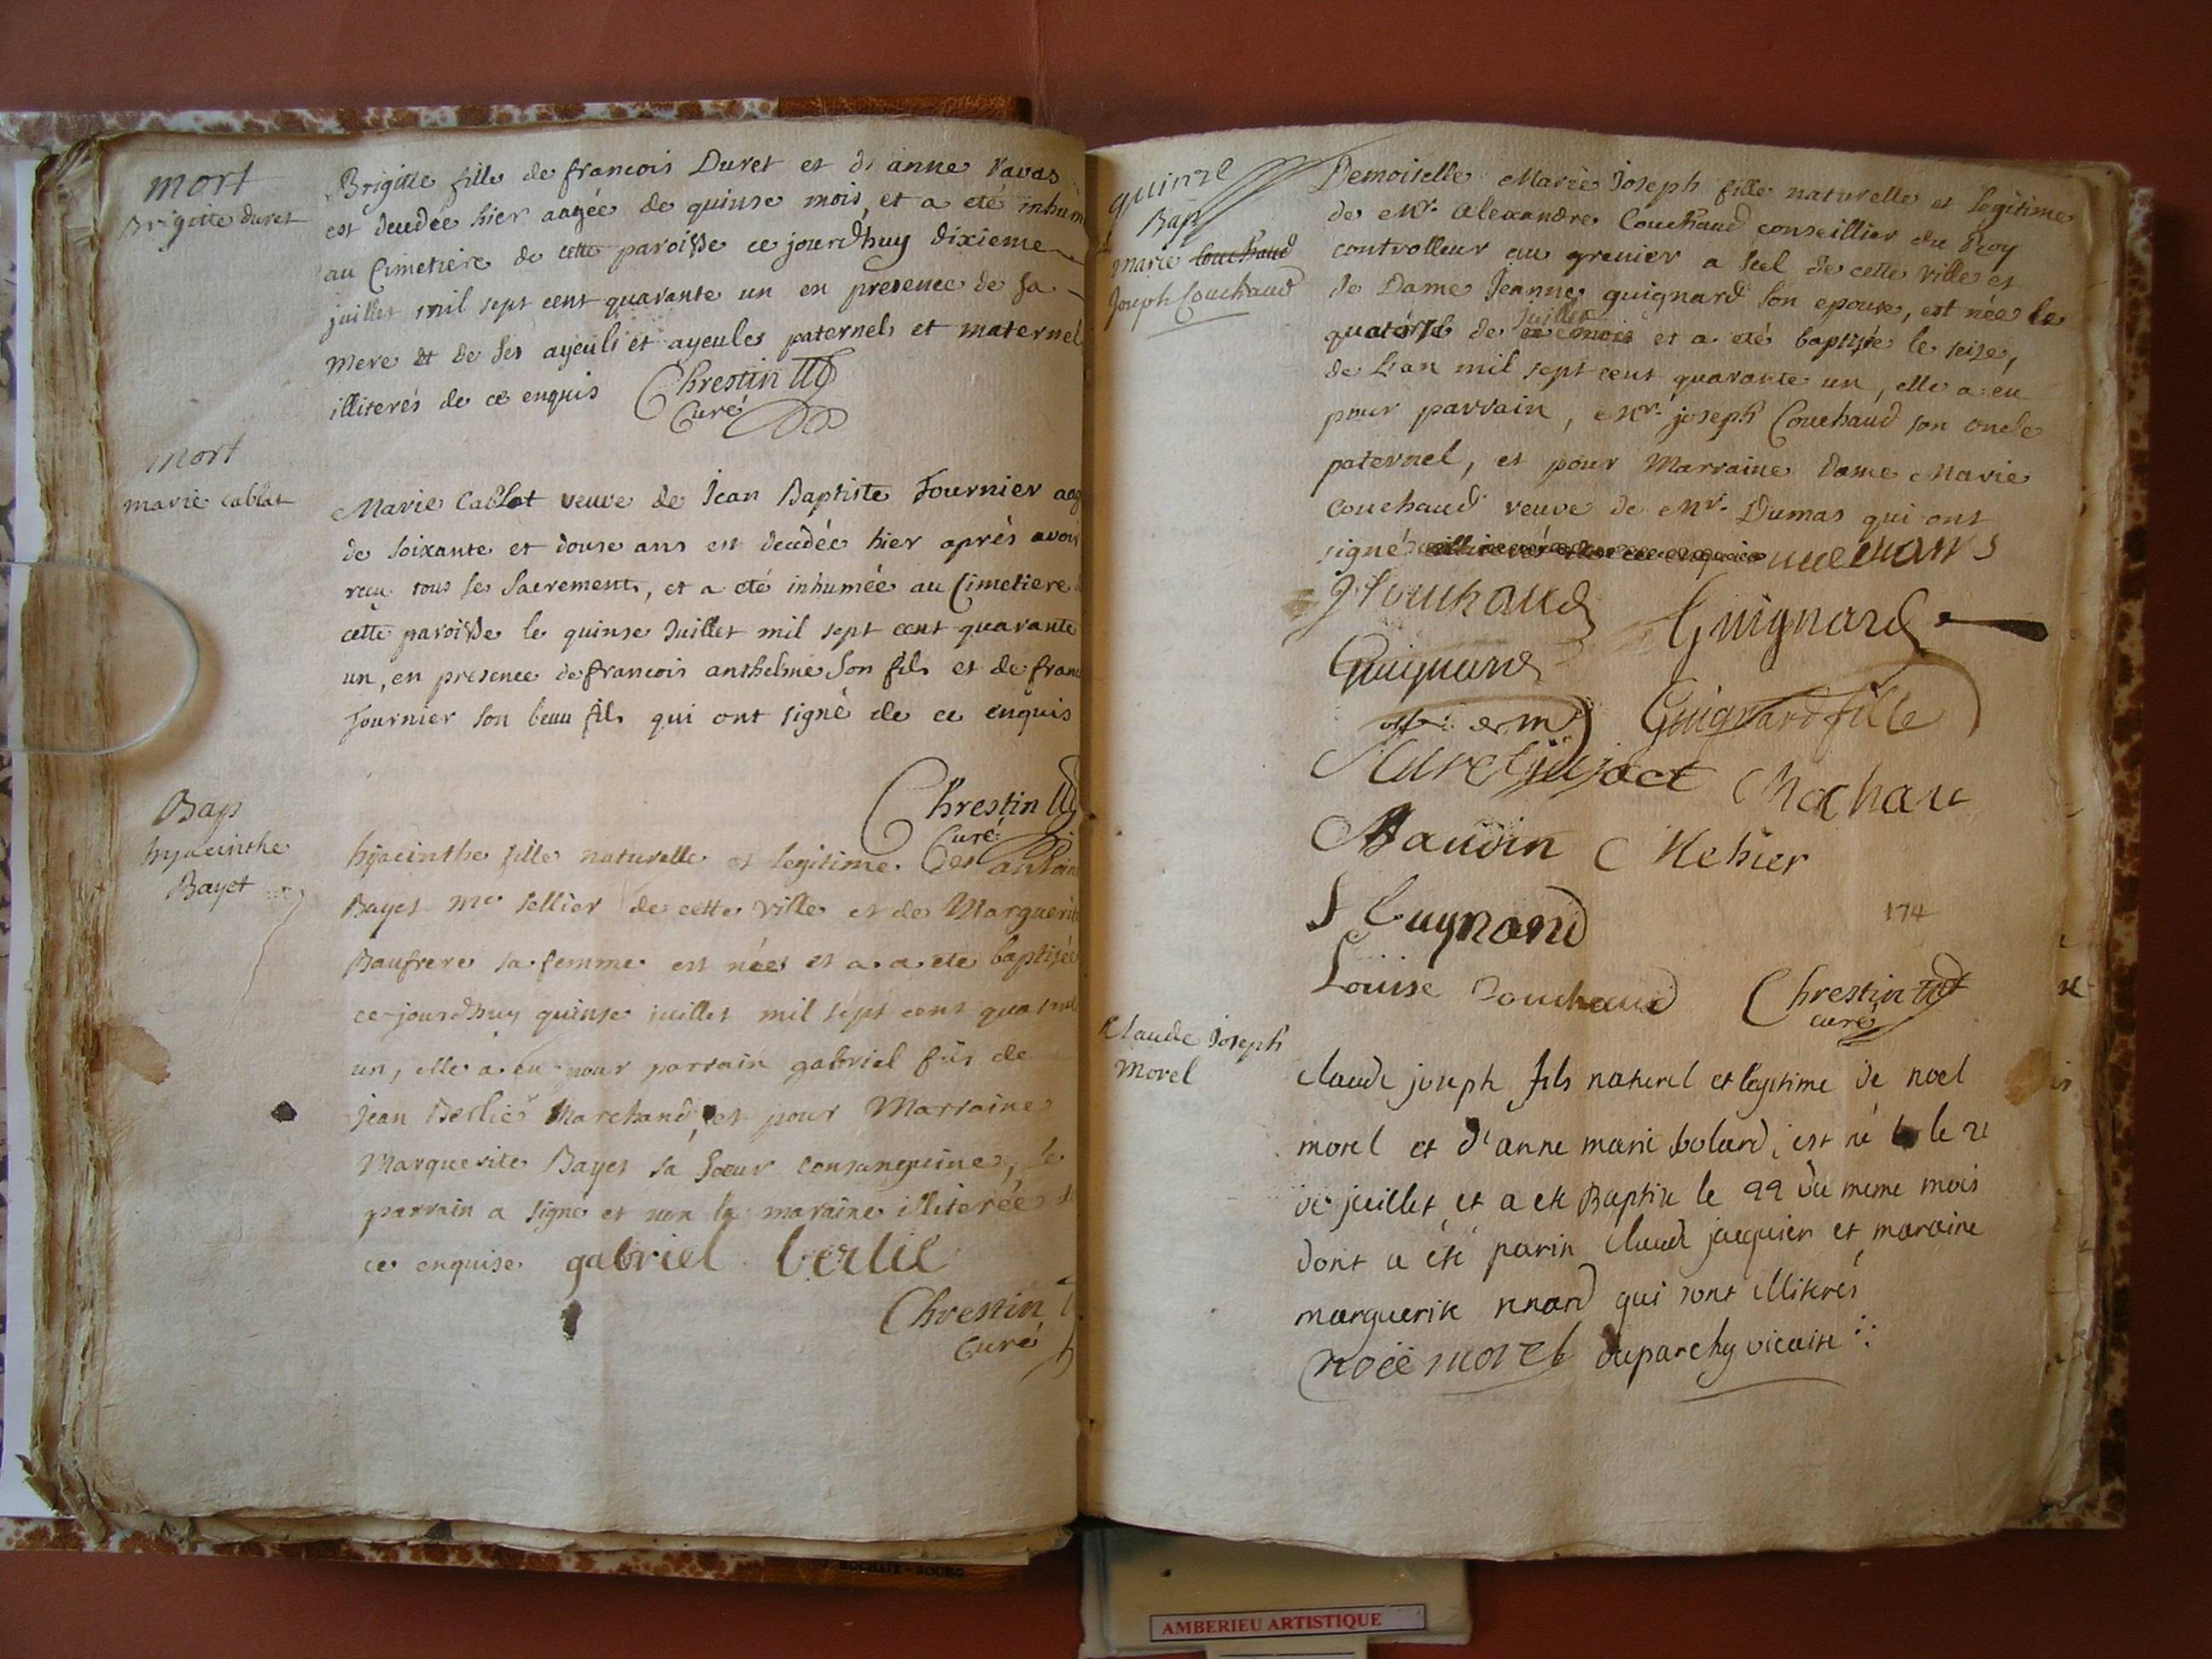 mort
Brigitte duret
Brigitte fille de francois Duret et d anne ravas
est decedée hier aagée de quinse mois, et a eté inhum
au Cimetiere de cette paroisse ce jourdhuy dixieme
juillet mil sept cent quarante un en presence de sa
mere et de ses ayeuls et ayeules paternels et maternel
illiterés de ce enquis Chrestin
Curé
mort
marie cablat
Marie Cablat veuve de Jean Baptiste Fournier aag
de soixante et douse ans est decedée hier après avoir
reçu tous les sacrements, et a eté inhumée au Cimetiere
cette paroisse le quinse Juillet mil sept cent quarante
un, en presence de francois anthelme son fils et de franc
Fournier son beau fils qui ont signé de ce enquis
Chrestin
Curé
Bap
hyacinthe
Bayet
hyacinthe fille naturelle et legitime de antoine
Bayet me sellier de cette ville et de Marguerite
Baufrere sa femme est née et a a ete baptisée
ce jourdhuy quinse juillet mil sept cent quarante
un, elle a eu pour parrain gabriel fils de
jean Berlié Marchand, et pour Marraine
Marguerite Bayet sa soeur consanguine, le
parrain a signé et non la maraine illiterée de
ce enquise gabriel berlie
Chrestin
Curé
quinze
Bap
marie couchaud
Joseph Couchaud
Demoiselle Marie Joseph fille naturelle et legitime
de Mr. Alexandre Couchaud conseillier du Roy
controlleur au grenier a sel de cette ville et
de Dame Jeanne guignard son epouse, est née le
juillet
quatorse de ce mois et a eté baptisée le seise,
de L'an mil sept cent quarante un, elle a eu
pour parrain, Mr. joseph Couchaud son oncle
paternel, et pour Marraine dame Marie
Couchaud veuve de Mr. Dumas qui ont
signé
J Couchaud Guignard
Guignard
Guignard fille
Machard
Baudin Methier
J Guynand
174
Louise Couchaud Chrestin
curé
Claude Joseph
Morel
claude joseph fils naturel et legitime de noel
morel et d'anne marie bolard, est né le 21
de juillet et a ete Baptise le 22 du meme mois
dont a été parin claude jacquier et maraine
marguerite renard qui sont illiterés
noël morel duparchy vicaire
AMBERIEU ARTISTIQUE